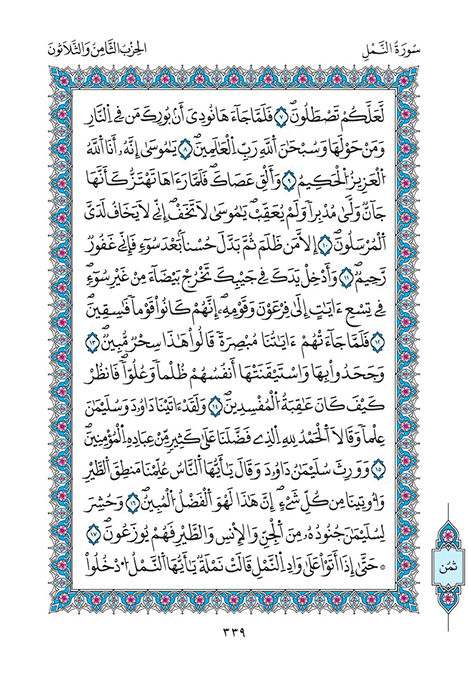 سُورَةُ النَّمْلِ
الحِزْبُ الثَّامِنُ وَالثَّلَاثُونَ
لَّعَلَّكُمْ تَصْطَلُونَۖ ٧ فَلَمَّا جَآءَهَا نُودِيَ أَنۢ بُورِكَ مَن فِے اِ۬لنَّارِ
وَمَنْ حَوْلَهَا وَسُبْحَٰنَ اَ۬للَّهِ رَبِّ اِ۬لْعَٰلَمِينَۖ ٨ يَٰمُوسَىٰٓ إِنَّهُۥٓ أَنَا اَ۬للَّهُ
اُ۬لْعَزِيزُ اُ۬لْحَكِيمُۖ ٩ وَأَلْقِ عَصَاكَۖ فَلَمَّا رَءَاهَا تَهْتَزُّ كَأَنَّهَا
جَآنّٞ وَلَّىٰ مُدْبِراٗ وَلَمْ يُعَقِّبْۖ يَٰمُوسَىٰ لَا تَخَفِۖ اِنِّے لَا يَخَافُ لَدَيَّ
اَ۬لْمُرْسَلُونَۖ ١٠ إِلَّا مَن ظَلَمَ ثُمَّ بَدَّلَ حُسْناَۢ بَعْدَ سُوٓءٖ فَإِنِّے غَفُورٞ
رَّحِيمٞۖ ١١ وَأَدْخِلْ يَدَكَ فِے جَيْبِكَ تَخْرُجْ بَيْضَآءَ مِنْ غَيْرِ سُوٓءٖۖ
فِے تِسْعِ ءَايَٰتٍ اِلَىٰ فِرْعَوْنَ وَقَوْمِهِۦٓۖ إِنَّهُمْ كَانُواْ قَوْماٗ فَٰسِقِينَۖ
١٢ فَلَمَّا جَآءَتْهُمُۥٓ ءَايَٰتُنَا مُبْصِرَةٗ قَالُواْ هَٰذَا سِحْرٞ مُّبِينٞۖ ١٣
وَجَحَدُواْ بِهَا وَاسْتَيْقَنَتْهَآ أَنفُسُهُمْ ظُلْماٗ وَعُلُوّاٗۖ فَانظُرْ
كَيْفَ كَانَ عَٰقِبَةُ اُ۬لْمُفْسِدِينَۖ ١٤ وَلَقَدَ اٰتَيْنَا دَاوُۥدَ وَسُلَيْمَٰنَ
عِلْماٗۖ وَقَالَا اَ۬لْحَمْدُ لِلهِ اِ۬لذِے فَضَّلَنَا عَلَىٰ كَثِيرٖ مِّنْ عِبَادِهِ اِ۬لْمُؤْمِنِينَۖ
١٥ وَوَرِثَ سُلَيْمَٰنُ دَاوُۥدَۖ وَقَالَ يَٰٓأَيُّهَا اَ۬لنَّاسُ عُلِّمْنَا مَنطِقَ اَ۬لطَّيْرِ
وَأُوتِينَا مِن كُلِّ شَےْءٍۖ اِنَّ هَٰذَا لَهُوَ اَ۬لْفَضْلُ اُ۬لْمُبِينُۖ ١٦ وَحُشِرَ
لِسُلَيْمَٰنَ جُنُودُهُۥ مِنَ اَ۬لْجِنِّ وَالْإِنسِ وَالطَّيْرِ فَهُمْ يُوزَعُونَۖ ١٧
۞ حَتَّىٰٓ إِذَآ أَتَوْاْ عَلَىٰ وَادِ اِ۬لنَّمْلِ قَالَتْ نَمْلَةٞ يَٰٓأَيُّهَا اَ۬لنَّمْلُ اُ۟دْخُلُواْ
ثُمُن
٣٣٩